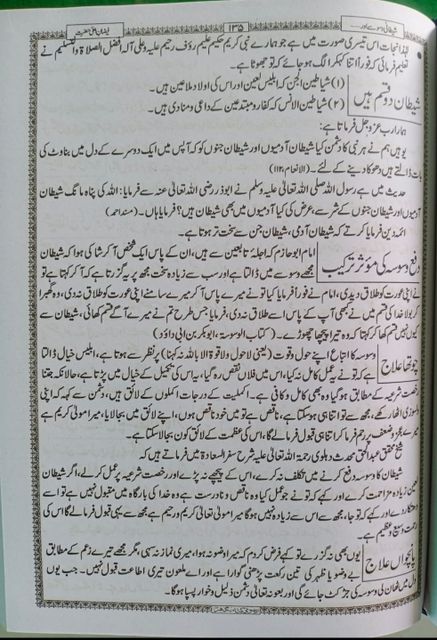 فیضان اعلیٰ حضرت ۱۳۵ شیطانی وسوسے اور.....
لہٰذا نجات اس تیسری صورت میں ہے جو ہمارے نبی کریم حکیم علیم رؤف رحیم علیہ وعلیٰ آلہ افضل الصلاۃ والتسلیم نے
تعلیم فرمائی کہ فوراً اتنا کہہ کر الگ ہو جائے کہ تو جھوٹا ہے۔
شیطان دو قسم ہیں
(۱) شیاطین الجن کہ ابلیس لعین اور اس کی اولاد ملاعین ہیں۔
(۲) شیاطین الانس کہ کفار و مبتدعین کے داعی و منادی ہیں۔
ہمارا رب عزوجل فرماتا ہے:
یوں ہیں ہم نے ہر نبی کا دشمن کیا شیطان آدمیوں اور شیطان جنوں کو کہ آپس میں ایک دوسرے کے دل میں بناوٹ کی
بات ڈالتے ہیں دھوکا دینے کے لئے۔ (الانعام ۱۱۲)
حدیث میں ہے رسول اللہ صلی اللہ تعالیٰ علیہ وسلم نے ابوذر رضی اللہ تعالیٰ عنہ سے فرمایا: اللہ کی پناہ مانگ شیطان
آدمیوں اور شیطان جنوں کے شر سے، عرض کی کیا آدمیوں میں بھی شیطان ہیں؟ فرمایا ہاں۔ (مسند احمد)
ائمہ دین فرمایا کرتے کہ شیطان آدمی، شیطان جن سے سخت تر ہوتا ہے۔
دفع وسوسہ کی مؤثر ترکیب
امام ابو حازم کہ اجلۂ تابعین سے ہیں، ان کے پاس ایک شخص آکر شاکی ہوا کہ شیطان
مجھے وسوسے میں ڈالتا ہے اور سب سے زیادہ سخت مجھ پر یہ گزرتا ہے کہ آکر کہتا ہے تو
نے اپنی عورت کو طلاق دیدی، امام نے فوراً فرمایا کیا تو نے میرے پاس آکر میرے سامنے اپنی عورت کو طلاق نہ دی، وہ گھبرا
کر بولا خدا کی قسم میں نے کبھی آپ کے پاس اسے طلاق نہ دی، فرمایا جس طرح تم نے میرے آگے قسم کھائی، شیطان سے
کیوں نہیں قسم کھا کر کہتا کہ وہ تیرا پیچھا چھوڑے۔ (کتاب الوسوسۃ، ابوبکر بن ابی داؤد)
چوتھا علاج
وسوسہ کا اتباع اپنے حول و قوت (یعنی لا حول ولا قوۃ الا باللہ نہ کہنا) پر نظر سے ہوتا ہے، ابلیس خیال ڈالتا
ہے کہ تو نے یہ عمل کامل نہ کیا، اس میں فلاں نقص رہ گیا، یہ اس کی تکمیل کے خیال میں پڑتا ہے، حالانکہ جتنا
رخصت شرعیہ کے مطابق ہو گیا وہ بھی کامل و کافی ہے۔ اکملیت کے درجات اکملوں کے لائق ہیں، دشمن سے کہہ کہ اپنی
دلسوزی اٹھا رکھے، مجھ سے تو اتنا ہی ہو سکتا ہے، ناقص ہے تو میں خود ناقص ہوں، اپنے لائق میں بجا لایا، میرا مولیٰ کریم ہے
میرے عجز و ضعف پر رحم فرما کر اتنا ہی قبول فرمالے گا، اس کی عظمت کے لائق کون بجا لا سکتا ہے۔
شیخ محقق عبدالحق محدث دہلوی رحمۃ اللہ تعالیٰ علیہ شرح سفر السعادۃ میں فرماتے ہیں کہ
شیطان کا وسوسہ دفع کرنے میں تکلف نہ کرے، اس کے پیچھے نہ پڑے اور رخصت شرعیہ پر عمل کر لے، اگر شیطان
لعین زیادہ مزاحمت کرے اور کہے کہ تو نے جو عمل کیا وہ ناقص و نادرست ہے وہ خدا کی بارگاہ میں مقبول نہیں ہے تو اسے
دھتکار دے اور کہے کہ تو جا، مجھ سے اس سے زیادہ نہیں ہوگا میرا مولیٰ تعالیٰ کریم و رحیم ہے مجھ سے یہی قبول فرمالے گا اس کی
رحمت وسیع و عظیم ہے۔
پانچواں علاج
یوں بھی نہ گزرے تو کہے فرض کردم کہ میرا وضو نہ ہوا، میری نماز نہ سہی مگر مجھے تیرے زعم کے مطابق
بے وضو یا ظہر کی تین رکعت پڑھنی گوارا ہے اور اے ملعون تیری اطاعت قبول نہیں۔ جب یوں
دل میں ٹھان لی وسوسہ کی جڑ کٹ جائے گی اور بعونہ تعالیٰ دشمن ذلیل و خوار پسپا ہوگا۔